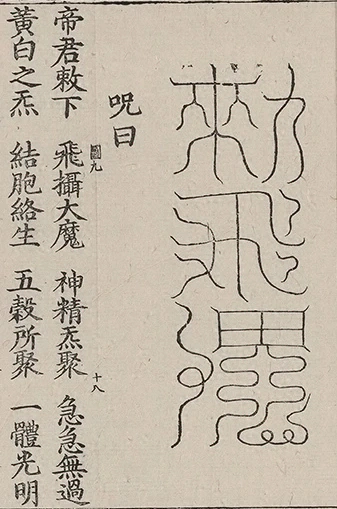 呪曰
圖九
十八
帝君敕下 飛攝大魔 神精炁聚 急急無過
黃白之炁 結胞絡生 五穀所聚 一體光明